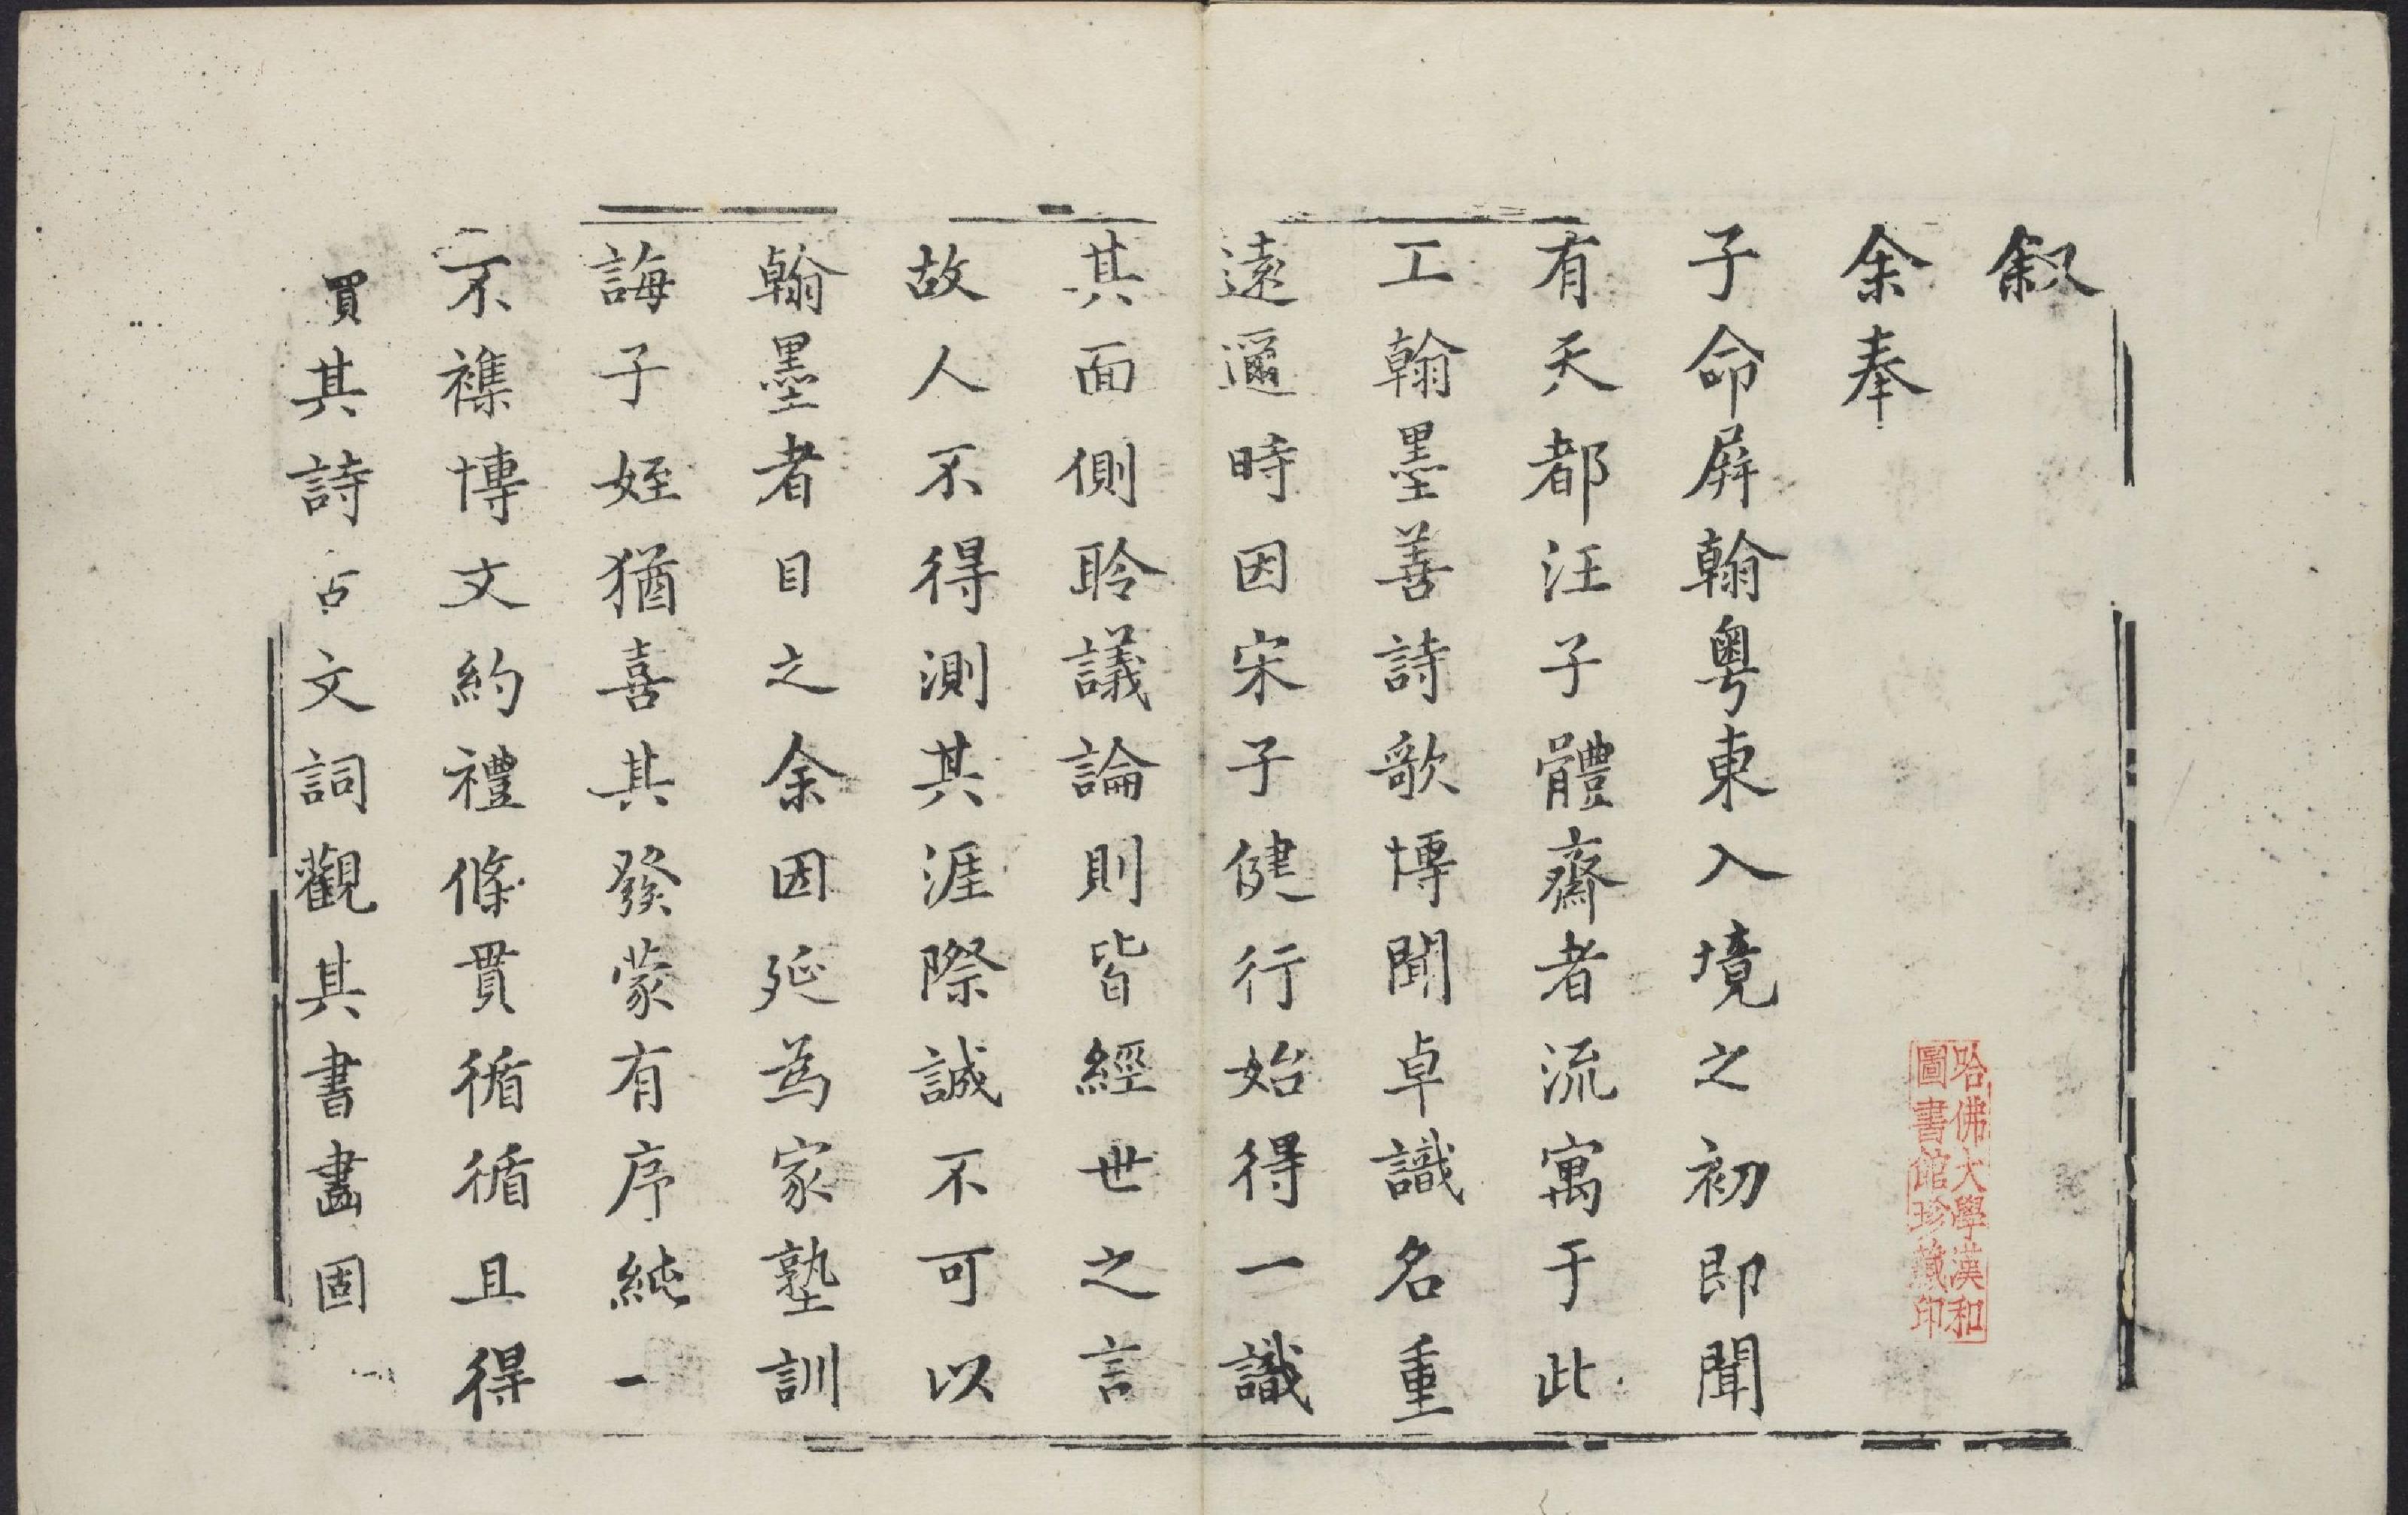 叙
余奉
子命屏翰粵東入境之初即聞
有天都汪子體齋者流寓于此
工翰墨善詩歌博聞卓識名重
遠邇時因宋子健行始得一識
其面側聆議論則皆經世之言
故人不得測其涯際誠不可以
翰墨者目之余因延為家塾訓
誨子姪猶喜其發蒙有序純一
不襍博文約禮條貫循循且得
買其詩古文詞觀其書畫固
哈佛大學漢和
圖書館珍藏印